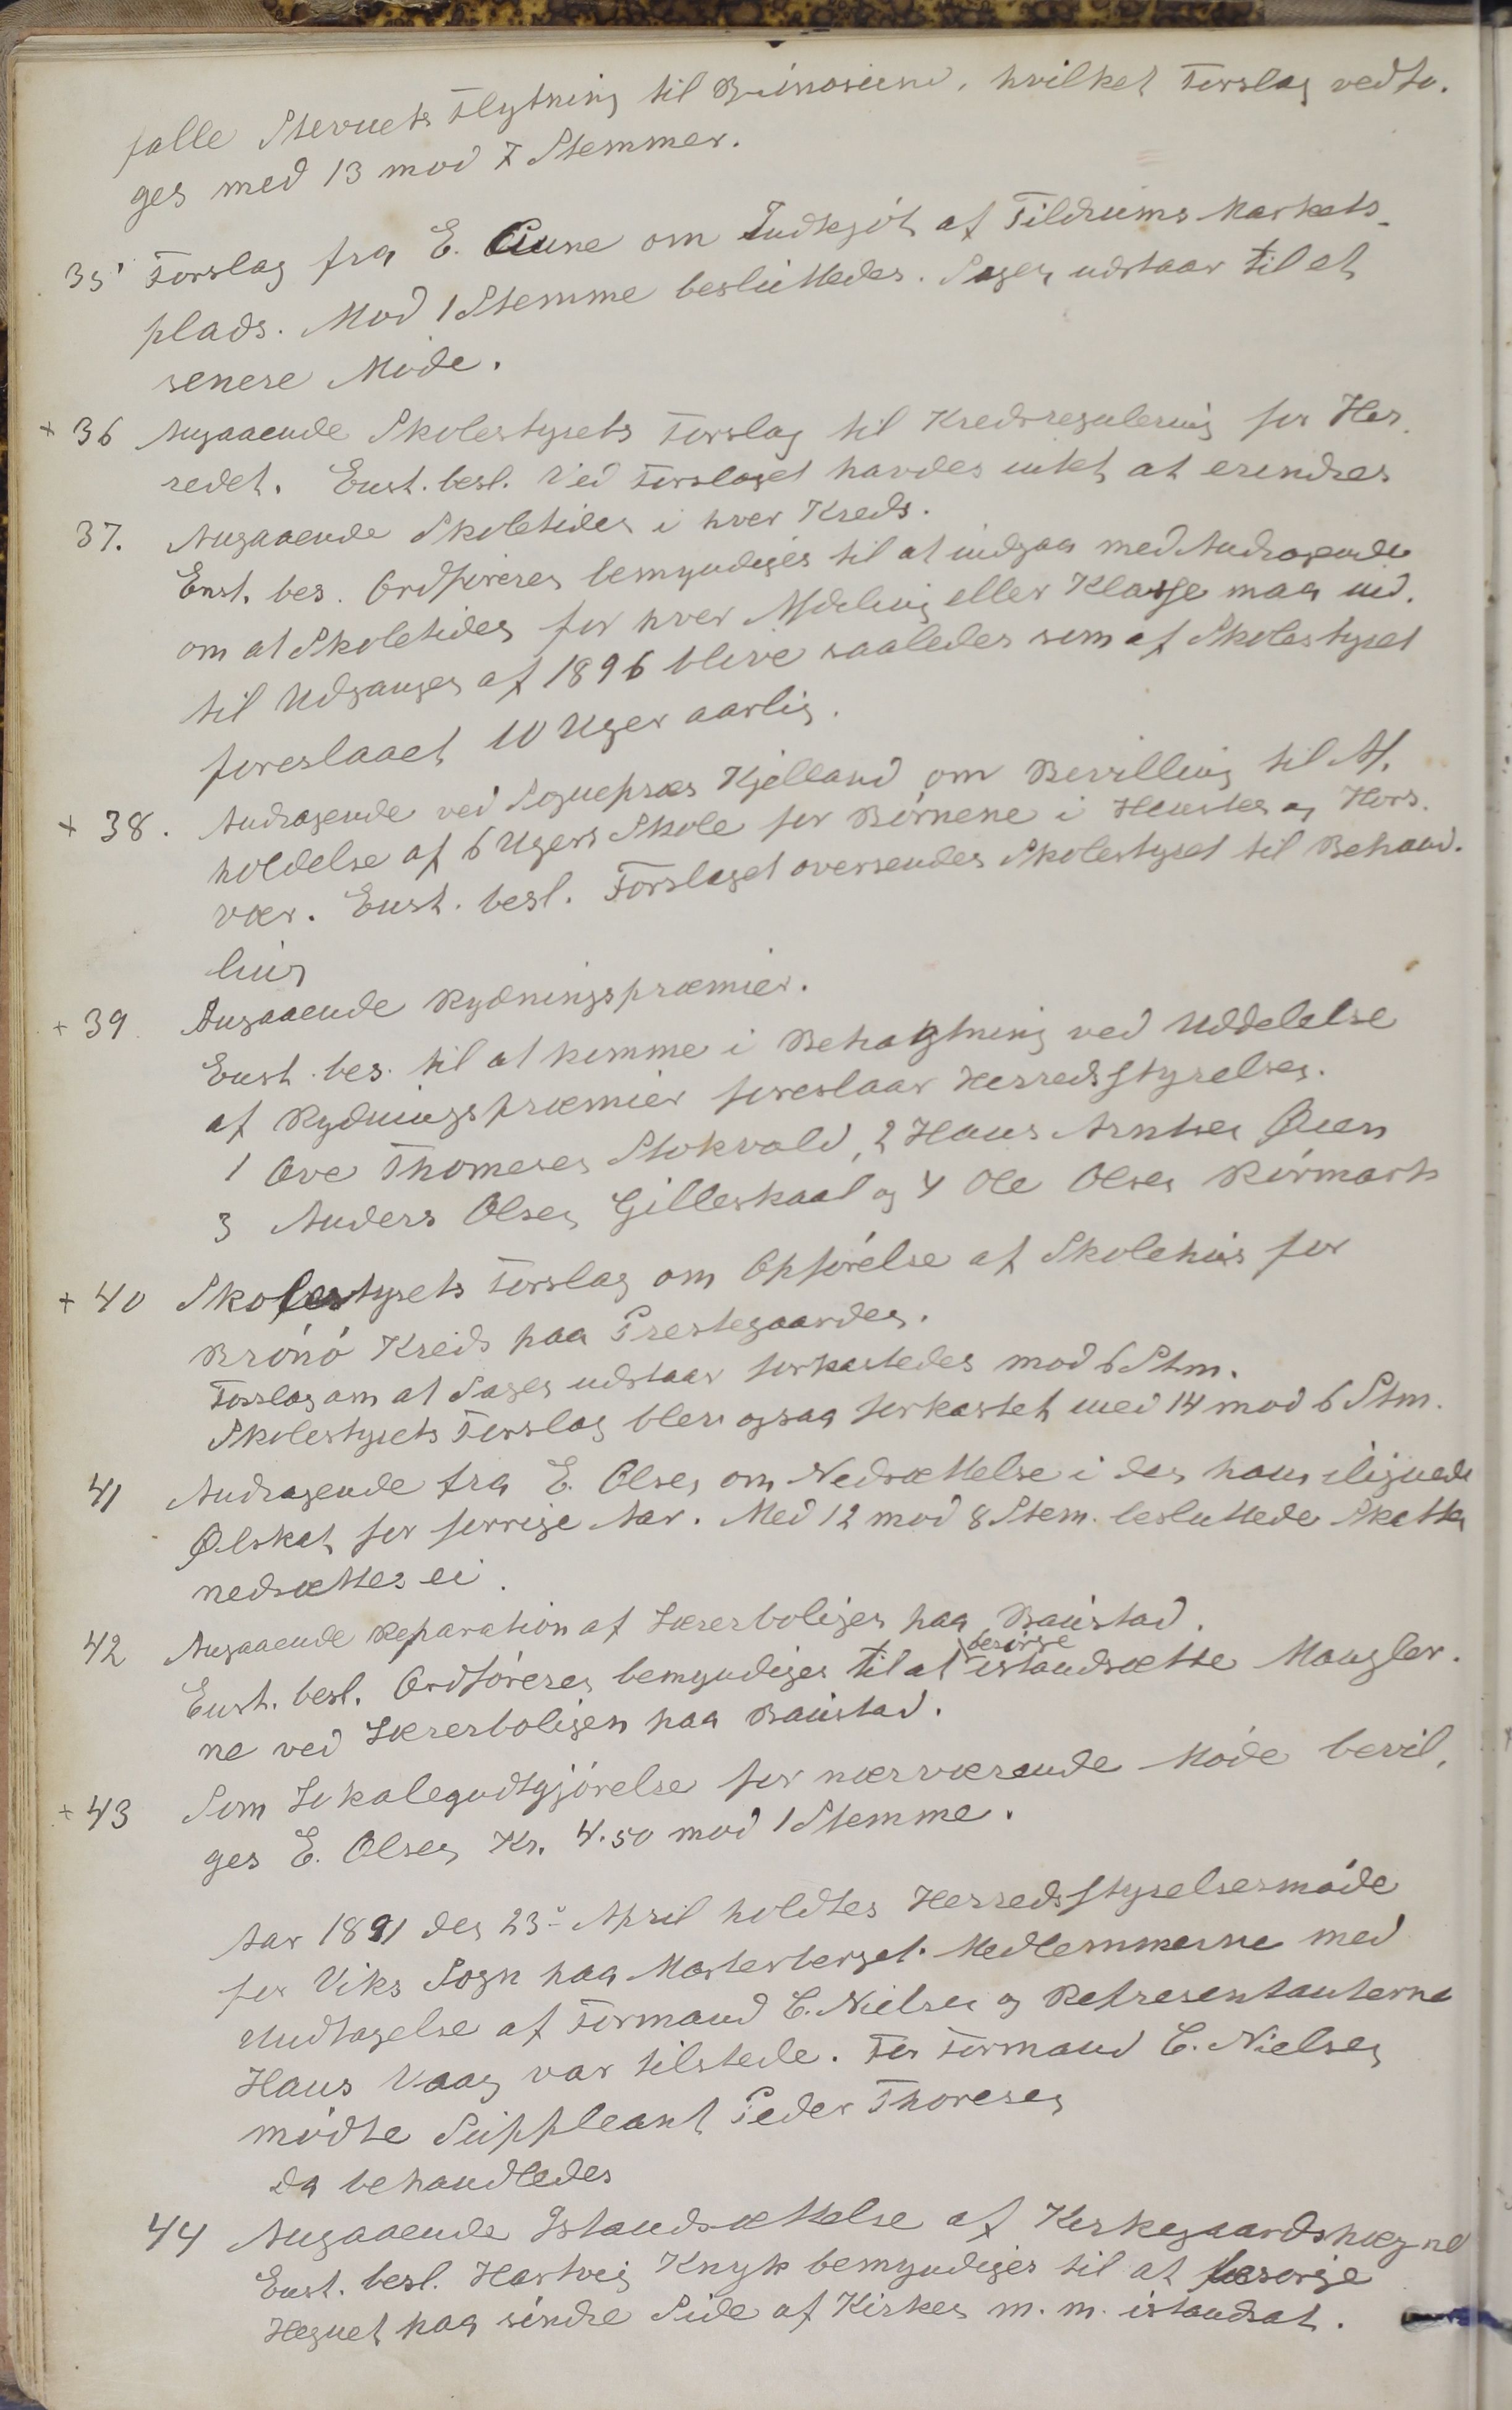 falle Stevnets Flytning til Brünosund, hvilket Forslag vedto.
ges med 13 mod 7 Stemmer.
35 Forslag fra E. Aune om Indkjöb af Tildrums Markeds-
plads. Mod 1 Stemme beslüttedes. Sagen udstaar til et
senere Möde.
+ 36 Angaaende Skolestyrets Forslag til Kredsregulering for Her-
redet. Enst. besl. Ved Forslaget havdes intet at erindres
37. Angaaende Skoletiden i hver Kreds.
Enst. bes. Ordföreren bemyndiges til at indgaa med Andragende
om at Skoletiden for hver Afdeling eller Klasse maa ind.
til Udgangen af 1896 blive saaledes som af Skolestyret
foreslaaet 10 Uger aarlig.
+ 38. Andragende ved Sognepræs Kjelland om Bevilling til Af.
holdelse af 6 Ugers Skole for Börnene i Henstes og Hors.
vær. Enst. besl. Forslaget oversendes Skolestyret til Behand.
ling
+ 39 Angaaende Rydningspræmier.
Enst. bes. til at komme i Behagtning ved Uddelelse
af Rydningspræmier foreslaar Herredsstyrelsen.
1 Ove Thomesen Stokvold, 2 Hans Arntsen Øien
3 Anders Olsen Gilleskaal og 4 Ole Olsen Rörmark
+ 40 Skolestyrets Forslag om Opförelse af Skolehüs for
Brönö Kreds paa Prestegaarden.
Forslag om at Sagen udstaar forkastedes mod 6 Stm.
Skolestyrets Forslag blev ogsaa forkastet med 14 mod 6 Stm.
41 Andragende fra E. Olsen om Nedsættelse i den ham ilignede
Ølskat for forrige Aar. Med 12 mod 8 Stem. besluttede Skatten
nedsættes ei.
42 Angaaende Reparation af Lærerboligen paa Baüstad.
besörge
Enst. besl. Ordföreren bemyndiges til at istandsætte Mangler.
ne ved Lærerboligen paa Baüstad.
+ 43 Som Lokalegodtgjörelse for nærværende Möde bevil.
ges E. Olsen Kr. 4.50 mod 1 Stemme.
Aar 1891 den 23de April holdtes Herredsstyrelsesmöde
for Viks Sogn paa Mosterberget. Medlemmerne med
Undtagelse af Formand C. Nielsen og Representanterne
Hans Vaag var tilstede. For Formand C. Nielsen
mödte Süppleant Peder Thoresen
Da behandledes
44 Angaaende Istandsættelse af Kirkegaardshægnet
Enst. besl. Hartvig Knyk bemyndiges til at besorge
Hegnet paa söndre Side af Kirken m. m. istandsat.